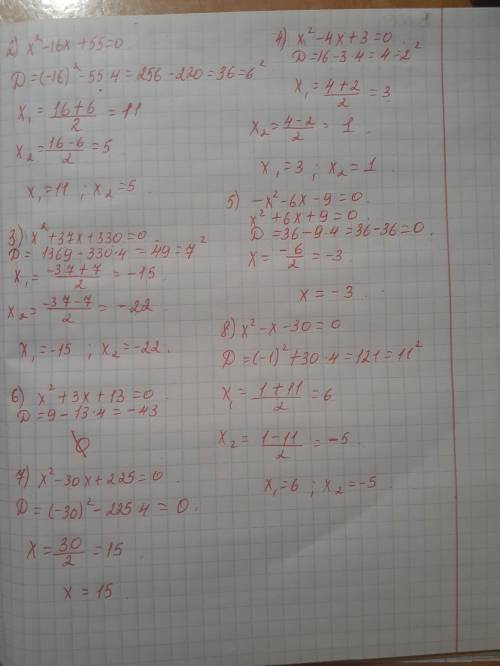 2) x² - 16x + 55 = 0
D = (-16)² - 55·4 = 256 - 220 = 36 = 6²
x₁ = (16 + 6)/2 = 11
x₂ = (16 - 6)/2 = 5
x₁ = 11 ; x₂ = 5
3) x² + 37x + 330 = 0
D = 1369 - 330·4 = 49 = 7²
x₁ = (-37 + 7)/2 = -15
x₂ = (-37 - 7)/2 = -22
x₁ = -15 ; x₂ = -22.
6) x² + 3x + 13 = 0.
D = 9 - 13·4 = -43
∅
7) x² - 30x + 225 = 0
D = (-30)² - 225·4 = 0.
x = 30/2 = 15
x = 15.
4) x² - 4x + 3 = 0
D = 16 - 3·4 = 4 = 2²
x₁ = (4 + 2)/2 = 3
x₂ = (4 - 2)/2 = 1
x₁ = 3 ; x₂ = 1
5) -x² - 6x - 9 = 0
x² + 6x + 9 = 0
D = 36 - 9·4 = 36 - 36 = 0.
x = -6/2 = -3
x = -3
8) x² - x - 30 = 0
D = (-1)² + 30·4 = 121 = 11²
x₁ = (1 + 11)/2 = 6
x₂ = (1 - 11)/2 = -5
x₁ = 6 ; x₂ = -5